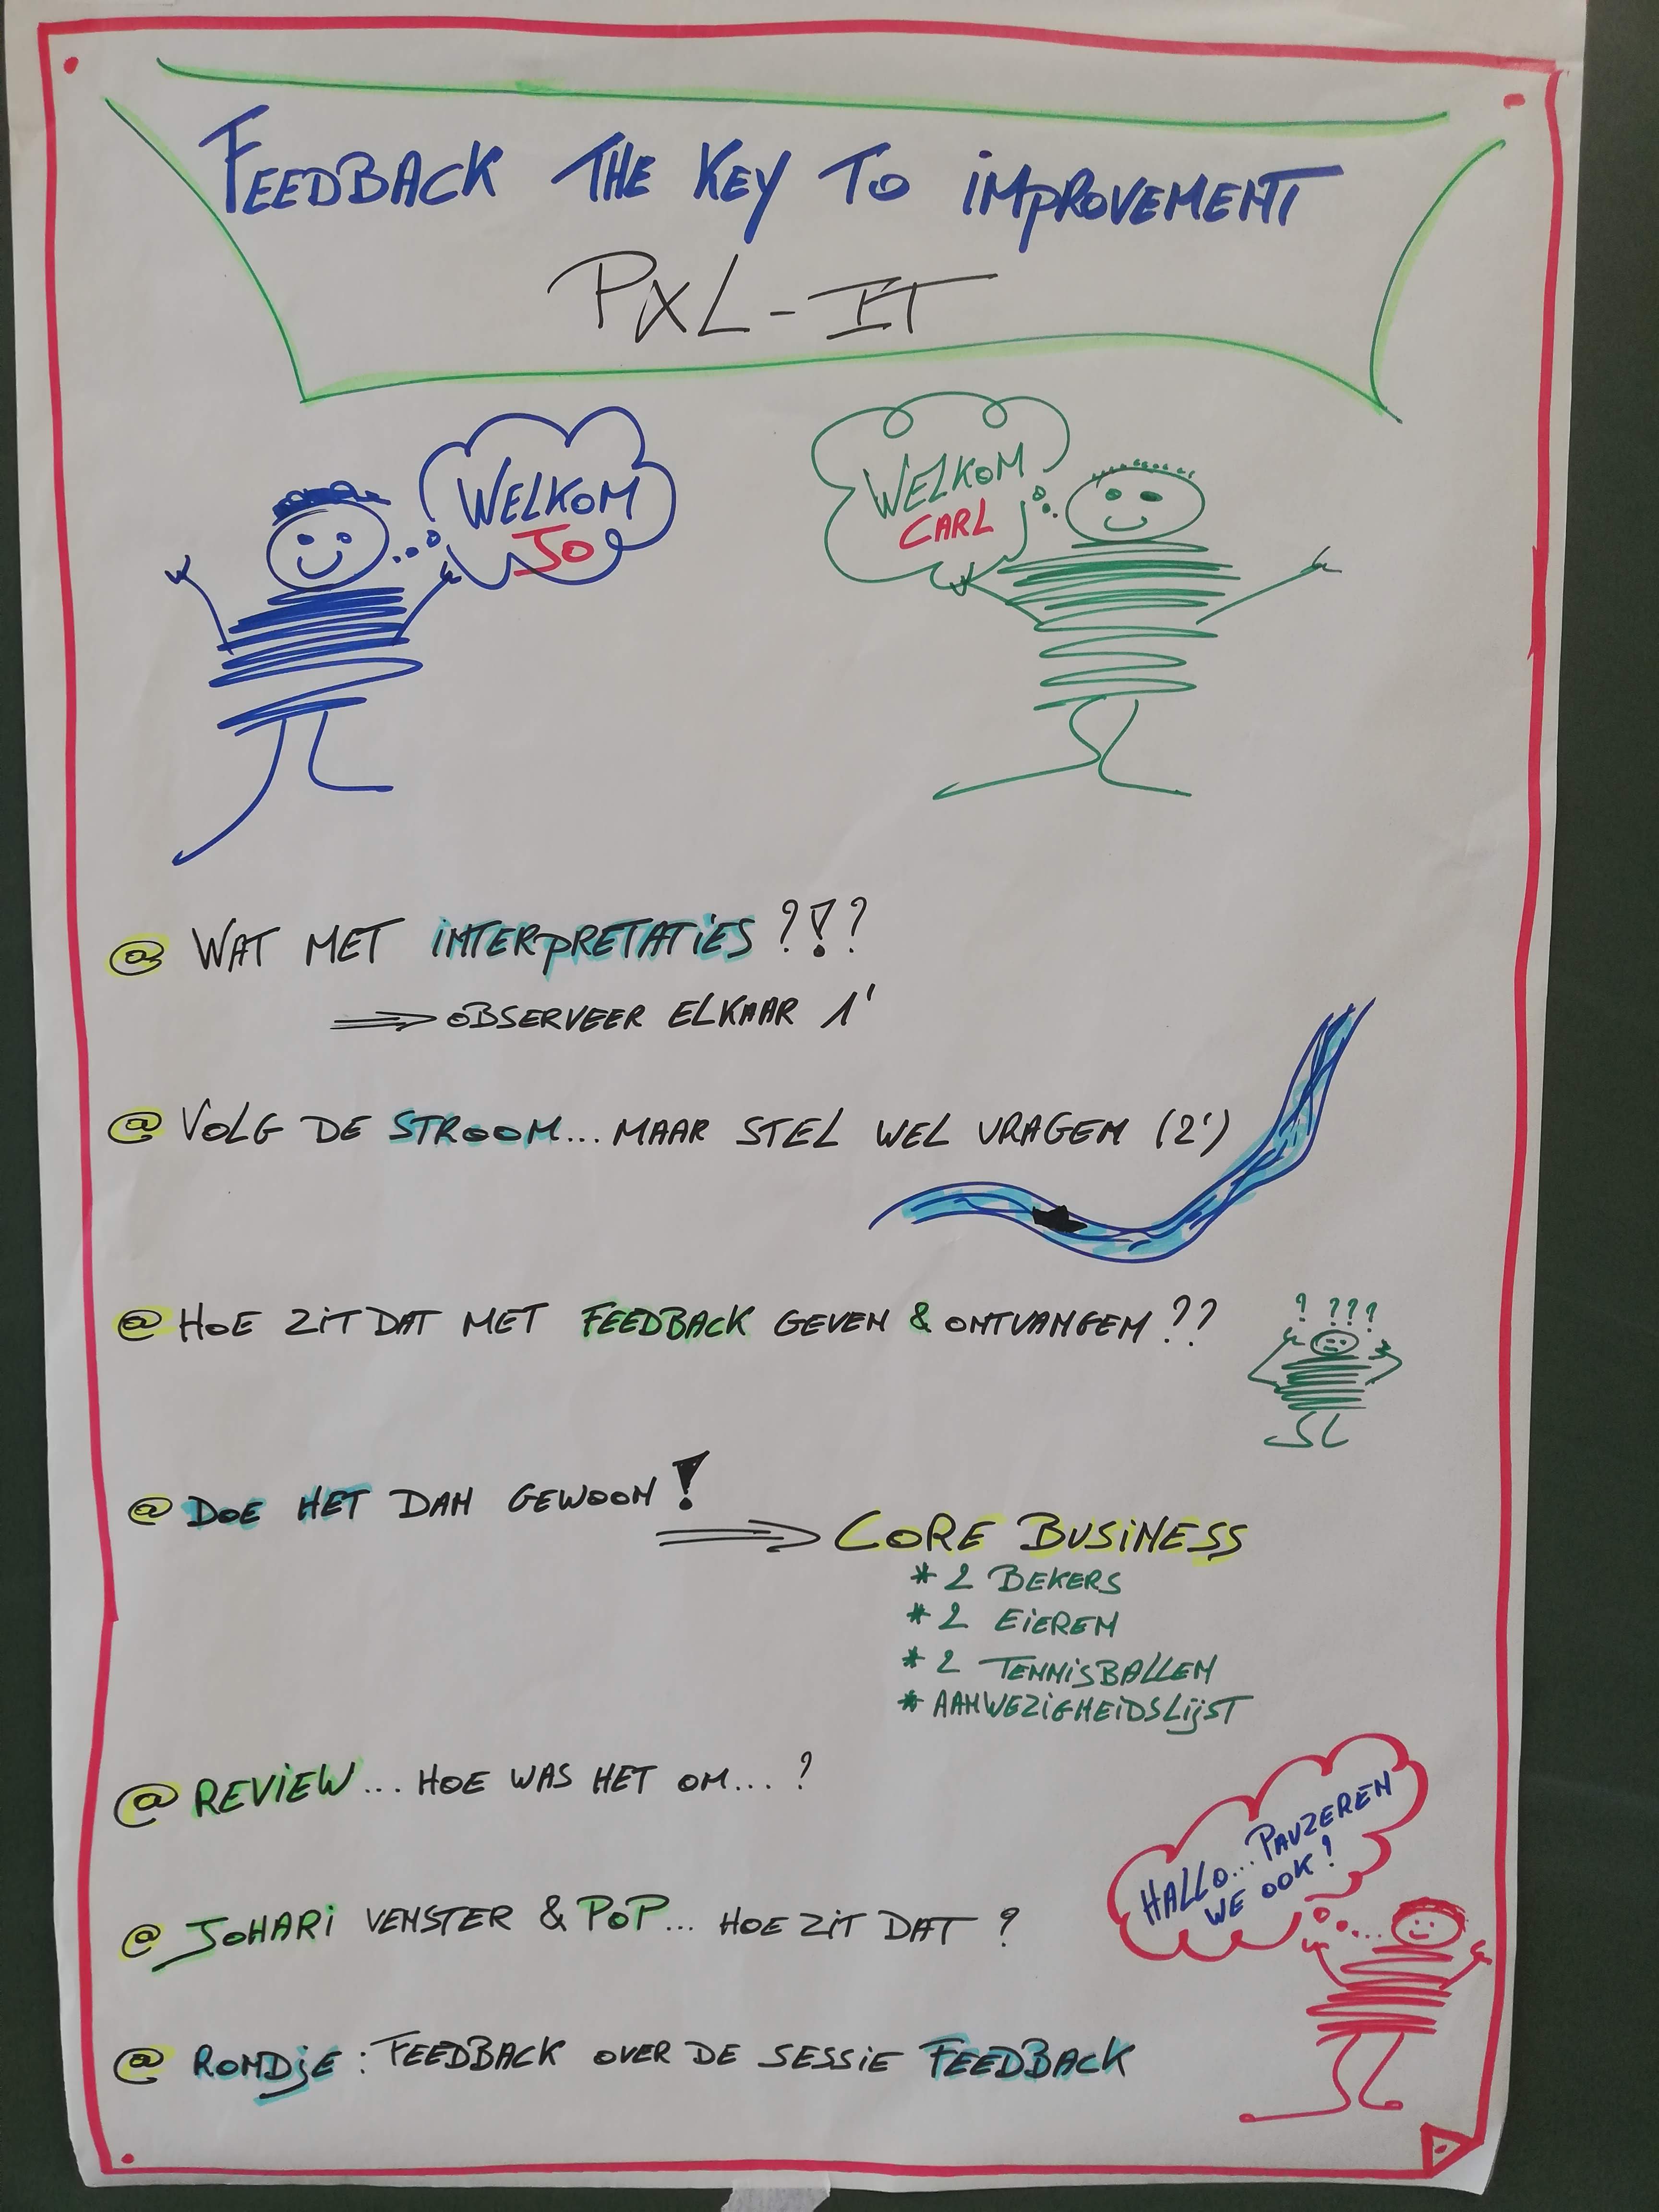 FEEDBACK THE KEY TO IMPROVEMENT
PXL-IT
WELKOM
JO
WELKOM
CARL
@ WAT MET INTERPRETATIES ?!?
⇒ OBSERVEER ELKAAR 1'
@ VOLG DE STROOM... MAAR STEL WEL VRAGEN (2')
@ HOE ZIT DAT MET FEEDBACK GEVEN & ONTVANGEN ??
? ???
@ DOE HET DAN GEWOON!
⇒ CORE BUSINESS
* 2 BEKERS
* 2 EIEREN
* 2 TENNISBALLEN
* AANWEZIGHEIDSLIJST
@ REVIEW... HOE WAS HET OM...?
HALLO... PAUZEREN
WE OOK!
@ JOHARI VENSTER & POP... HOE ZIT DAT ?
@ RONDJE: FEEDBACK OVER DE SESSIE FEEDBACK